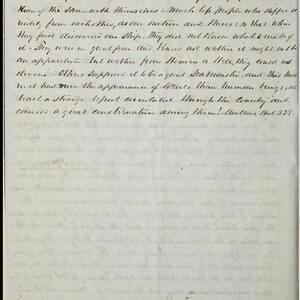 them of the Same with themselves – Much less people who differ so
widely from each other, as our nation and theirs: so that when
they first discovered our Ship, they did not know what to make of
it – They were in great fear and knew not whether it might not be
an apparition – but whether from Heaven or Hell, they could not
discern – Others suppose it to be a great Sea monster, and the Men
in it had more the appearance of Devils than human beings, as
had a strange report circulated through the Country and
caused a great consternation among them! Moultons Hist. 258